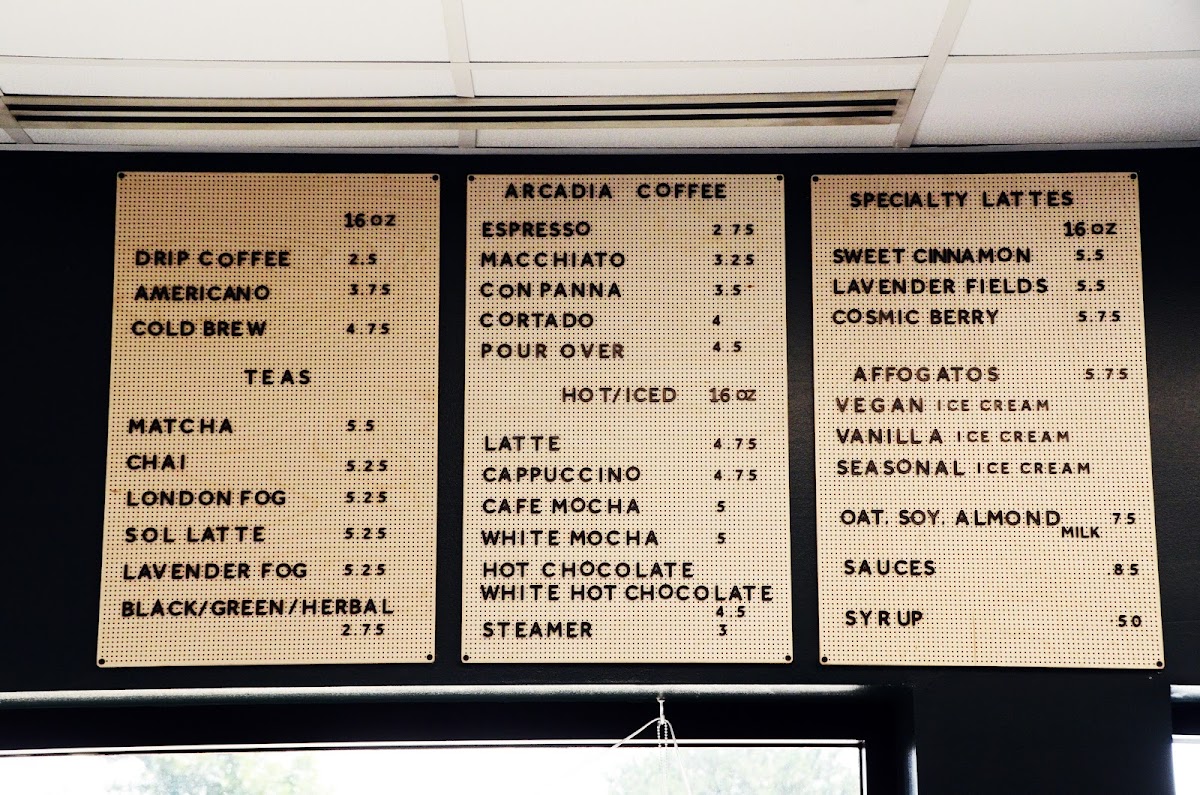 16 OZ
DRIP COFFEE 2.5
AMERICANO 3.75
COLD BREW 4.75
TEAS
MATCHA 5.5
CHAI 5.25
LONDON FOG 5.25
SOL LATTE 5.25
LAVENDER FOG 5.25
BLACK/GREEN/HERBAL
2.75
ARCADIA COFFEE
ESPRESSO 2 75
MACCHIATO 3.25
CON PANNA 3.5
CORTADO 4
POUR OVER 4.5
HOT/ICED 16 OZ
LATTE 4.75
CAPPUCCINO 4.75
CAFE MOCHA 5
WHITE MOCHA 5
HOT CHOCOLATE
WHITE HOT CHOCOLATE
4.5
STEAMER 3
SPECIALTY LATTES
16 OZ
SWEET CINNAMON 5.5
LAVENDER FIELDS 5.5
COSMIC BERRY 5.75
AFFOGATOS 5.75
VEGAN ICE CREAM
VANILLA ICE CREAM
SEASONAL ICE CREAM
OAT. SOY. ALMOND MILK 75
SAUCES .85
SYRUP .50